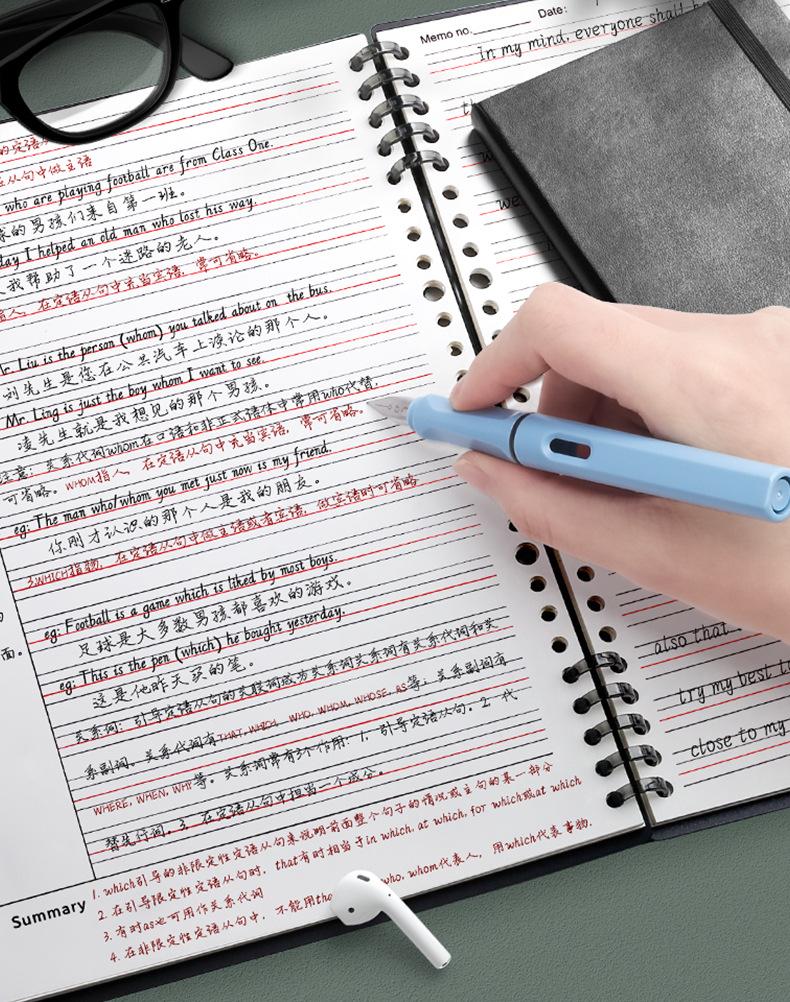 的定语从
从句中做主语
who are playing football are from Class One.
球的男孩们来自第一班。
day I helped an old man who lost his way.
我帮助了一个迷路的老人。
指人, 在定语从句中充当宾语, 常可省略。
Mr. Liu is the person (whom) you talked about on the bus.
刘先生是您在公共汽车上谈论的那个人。
Mr. Ling is just the boy whom I want to see.
凌先生就是我想见的那个男孩。
注意: 关系代词whom在口语和非正式语体中常用who代替,
可省略。WHOM指人, 在定语从句中充当宾语, 常可省略。
eg: The man who/whom you met just now is my friend.
你刚才认识的那个人是我的朋友。
3.WHICH指物, 在定语从句中做主语或者宾语, 做宾语时可省略
eg: Football is a game which is liked by most boys.
足球是大多数男孩都喜欢的游戏。
eg: This is the pen (which) he bought yesterday.
这是他昨天买的笔。
面。
关系词: 引导定语从句的关联词成为关系词关系词有关系代词和关
系副词。关系代词有THAT, WHICH, WHO, WHOM, WHOSE, AS等; 关系副词有
WHERE, WHEN, WHY等。关系词常有3个作用: 1. 引导定语从句。2. 代
替先行词。3. 在定语从句中担当一个成分。
Summary
1. which引导的非限定性定语从句来说明前面整个句子的情况或主句的某一部分
2. 在引导限定性定语从句时, that有时相当于in which, at which, for which或at which
3. 有时as也可用作关系代词
4. 在非限定性定语从句中, 不能用tha who, whom代表人, 用which代表事物.
Memo no.
Date:
In my mind, everyone shall
we
also that
try my best to
close to my